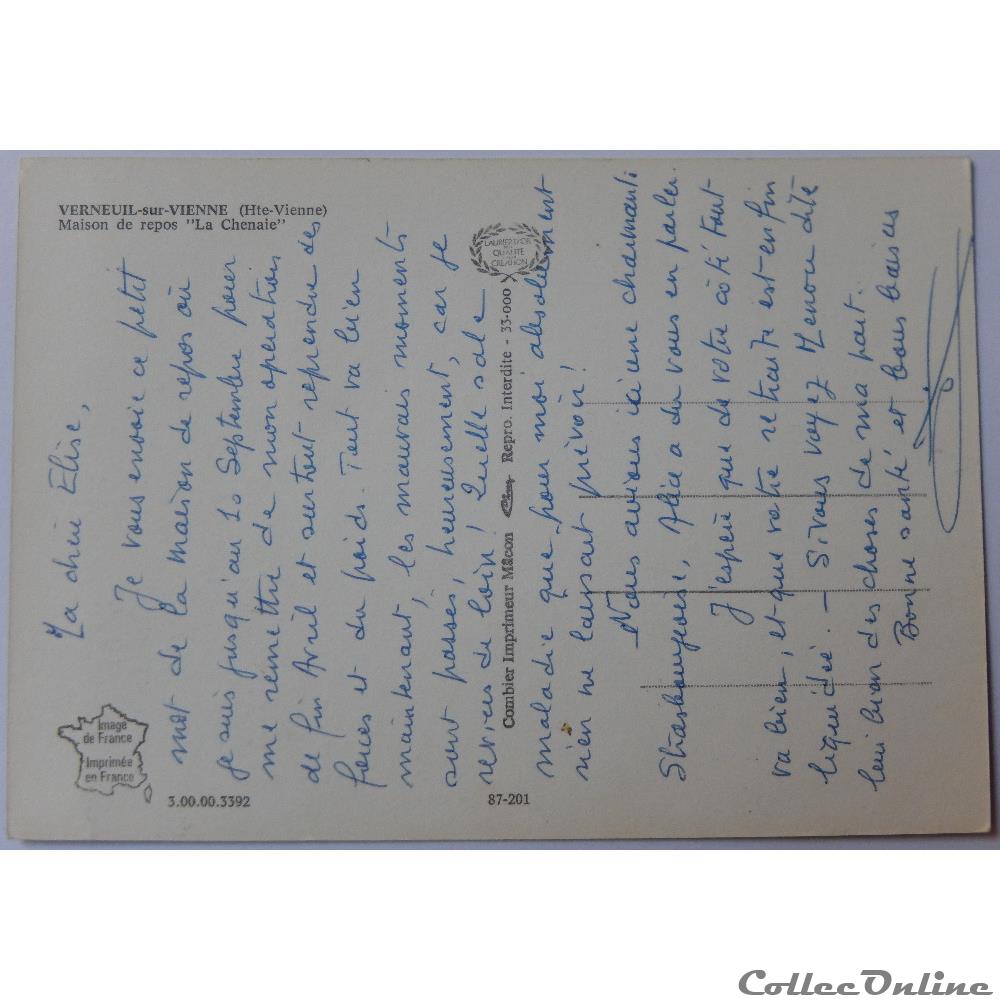 VERNEUIL-sur-VIENNE (Hte-Vienne)
Maison de repos "La Chenaie"
Ma chère Elise,
Je vous envoie ce petit
mot de la maison de repos où
je suis jusqu'au 10 Septembre pour
me remettre de mon opération
de fin Avril et surtout reprendre des
forces et du poids. Tout va bien
maintenant, les mauvais moments
sont passés, heureusement, car je
reviens de loin! Quelle sale
maladie que pour moi absolument
rien ne laissait prévoir!
Nous avions ici une charmante
Strasbourgeoise, Alice a du vous en parler.
J'espère que de votre côté tout
va bien, et que votre retraite est enfin
liquidée. — Si vous voyez Menou dites
lui bien des choses de ma part.
Bonne santé et bons baisers
Image
de France
Imprimée
en France
3.00.00.3392
87-201
Combier Imprimeur Mâcon Cim Repro. Interdite - 33-000
LAURIER D'OR
DE
QUALITÉ
CRÉATION
CollecOnline